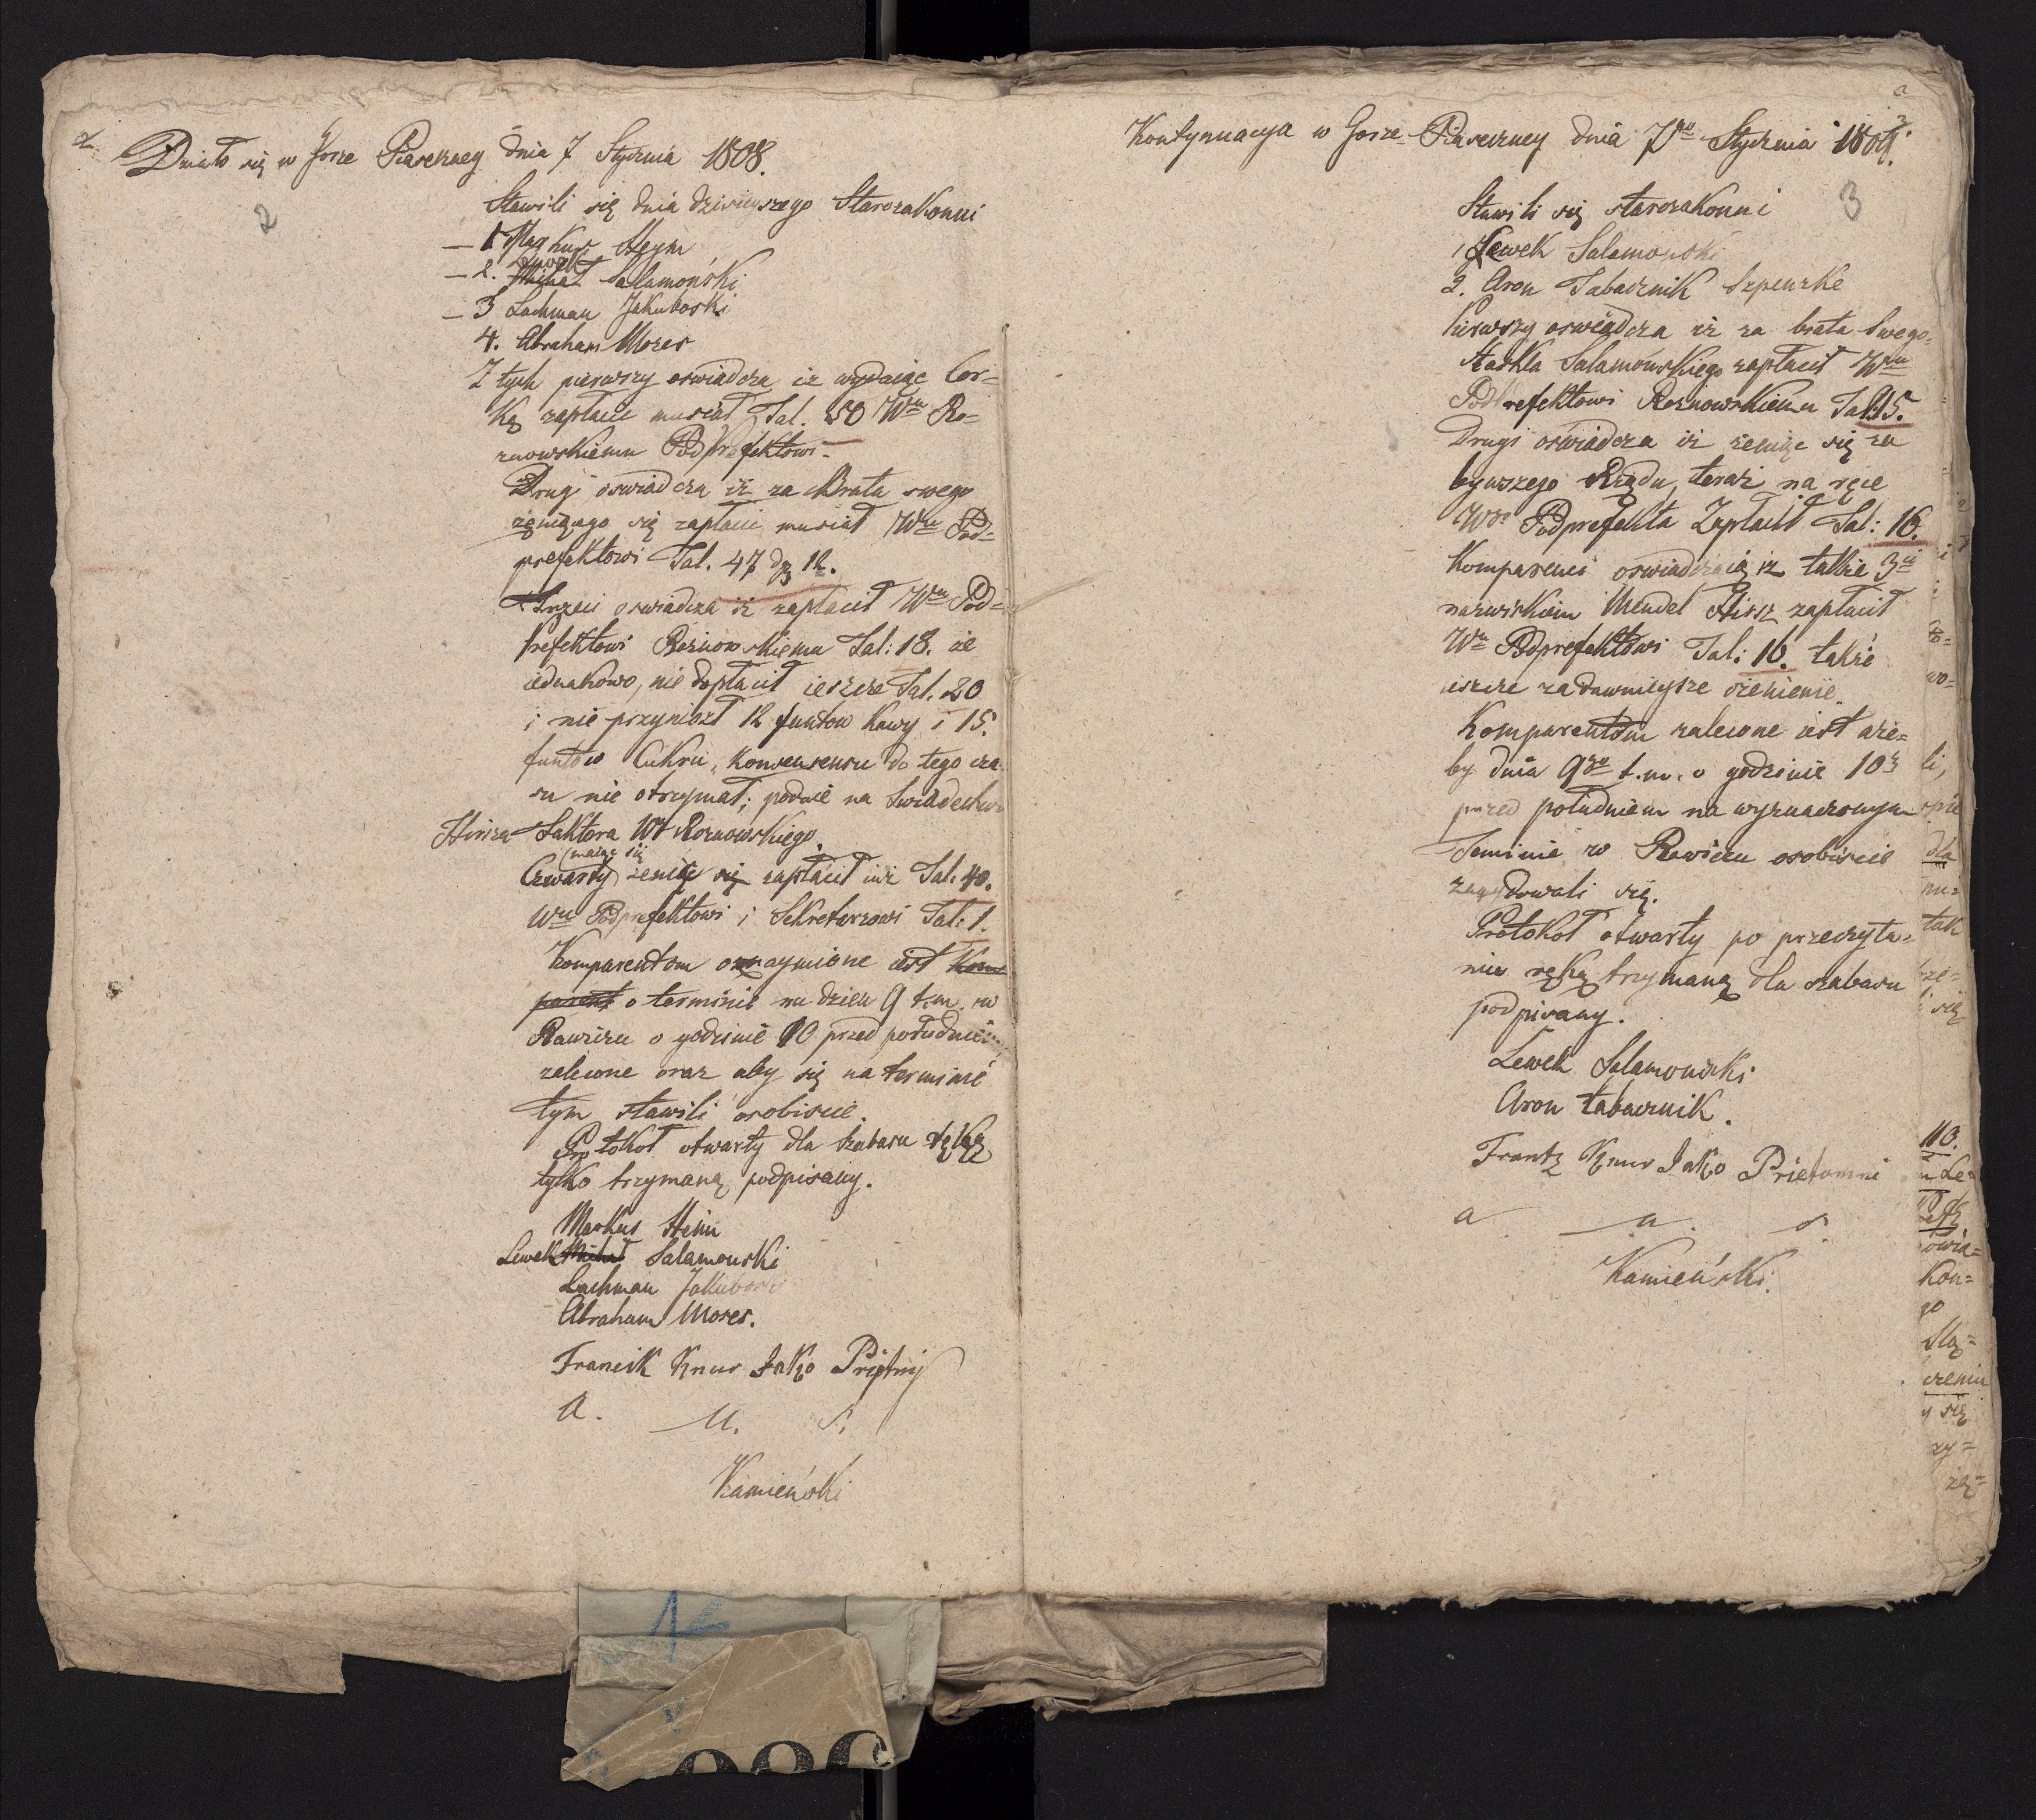 2
Działo się w Gorze Piaseczney dnia 7 Stycznia 1808.
2
Stawili się dnia dzisieyszego Starozakonni
– 1 Markus Heym
Lewek
– 2. Michał Salamoński
– 3 Lachman Jakuboski
4. Abraham Mozes
Z tych pierwszy oswiadcza iż wydaiąc Cor=
kę zapłacić musiał Tal. 50 Wmu Ro=
znowskiemu Podprefektowi.
Drugi oswiadcza iż za Brata swego
żęniącego się zapłacić musiał Wmu Pod=
prefektowi Tal. 47 dg 12.
Trzeci oswiadcza iż zapłacił Wmu Pod=
prefektowi Roznowskiemu Tal: 18. że
iednakowo, nie dopłacił ieszcze Tal. 20
i nie przyniozł 12 funtow Kawy i 15.
funtow Cukru, Konsensensu do tego cza
su nie otrzymał; podaie na Swiadectwo
Hirsza Faktora W. Roznowskiego.
(maiąc się
Czwarty) żeniąc się zapłacił iuż Tal: 40.
Wmu Podprefektowi i Sekretarzowi Tal: 1.
Komparentom oznaymione iest Kom
parent o terminie na dzien 9 t.m. w
Rawiczu o godzinie 10 przed południem
zalecone oraz aby się na terminie
tym stawili osobiscie.
Protokoł otwarty dla szabasu ręką
tylko trzymaną podpisany.
Markus Heim
Lewek Michał Salamonski
Lachman Jakuboski
Abraham Mozes.
Francik Knur Jako Priętny
a. u. s.
Kamieński
Kontynuacya w Gorze Piaseczney dnia 7go Stycznia 1808.
3
Stawili się starozakonni
1 Lewek Salamonski
2. Aron Tabacznik
Pierwszy oswiadcza iż za brata Swego
Salamońskiego zapłacił Wmu
Podprefektowi Roznowskiemu Tal: 15.
Drugi oświadcza iż żeniąc się za
bywszego Rządu, teraz na ręce
Wgo Podprefekta Zapłacił Tal: 16.
Komparenci oswiadczaią iż także 3ci
nazwiskiem Mendel Hirsz zapłacił
Wmu Podprefektowi Tal: 16. także
ieszcze za dawnieysze ożenienie.
Komparentom zalecone iest aże=
by dnia 9go t.m. o godzinie 10
przed południem na wyznaczonym
Terminie w Rawiczu osobiscie
znaydowali się.
Protokoł otwarty po przeczyta=
niu ręką trzymaną dla szabasu
podpisany.
Lewek Salamonski
Aron tabacznik.
Frantz Knur Jako Prietomni
a u. s.
Kamieński.